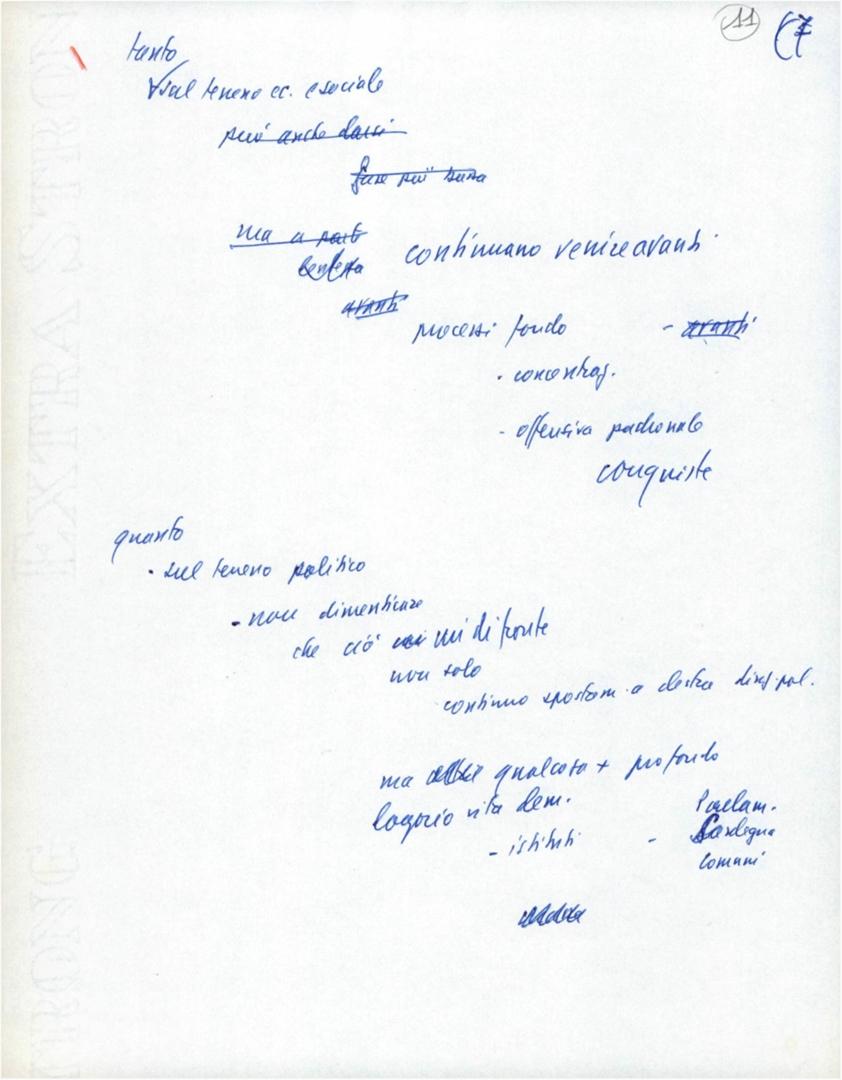 11
tanto
sul terreno ec. e sociale
può anche darsi
fase più bassa
ma a parte
continuano venire avanti
avanti
processi fondo - avanti
- concentraz.
- offensiva padronale
conquiste
quanto
- sul terreno politico
- non dimenticare
che ciò mi di fronte
non solo
continuo spostam. a destra
ma qualcosa + profondo
logorio vita dem.
- istituti - Parlam.
Sardegna
Comuni